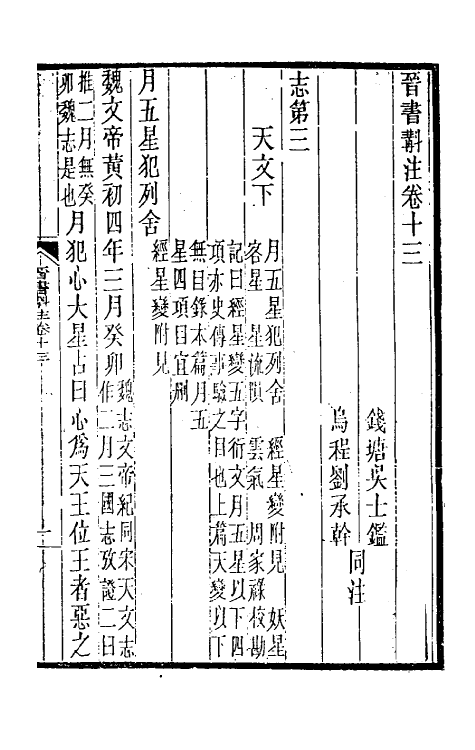 晉書斠注卷十三
錢塘吳士鑑
烏程劉承幹
同注
志第三
天文下
月五星犯列舍 經星變附見 妖星
客星 星流隕 雲氣 周家祿校勘
記曰經星變五字衍文月五星以下四
項亦史傳事驗之目也上篇天變以下
無目錄本篇月五
星四項目宜刪
經星變附見
月五星犯列舍
魏文帝黃初四年三月癸卯
魏志文帝紀同宋天文志
作二月三國志攷證二曰
推二月無癸
卯魏志是也
月犯心大星占曰心爲天王位王者惡之
晉書斠注卷十三